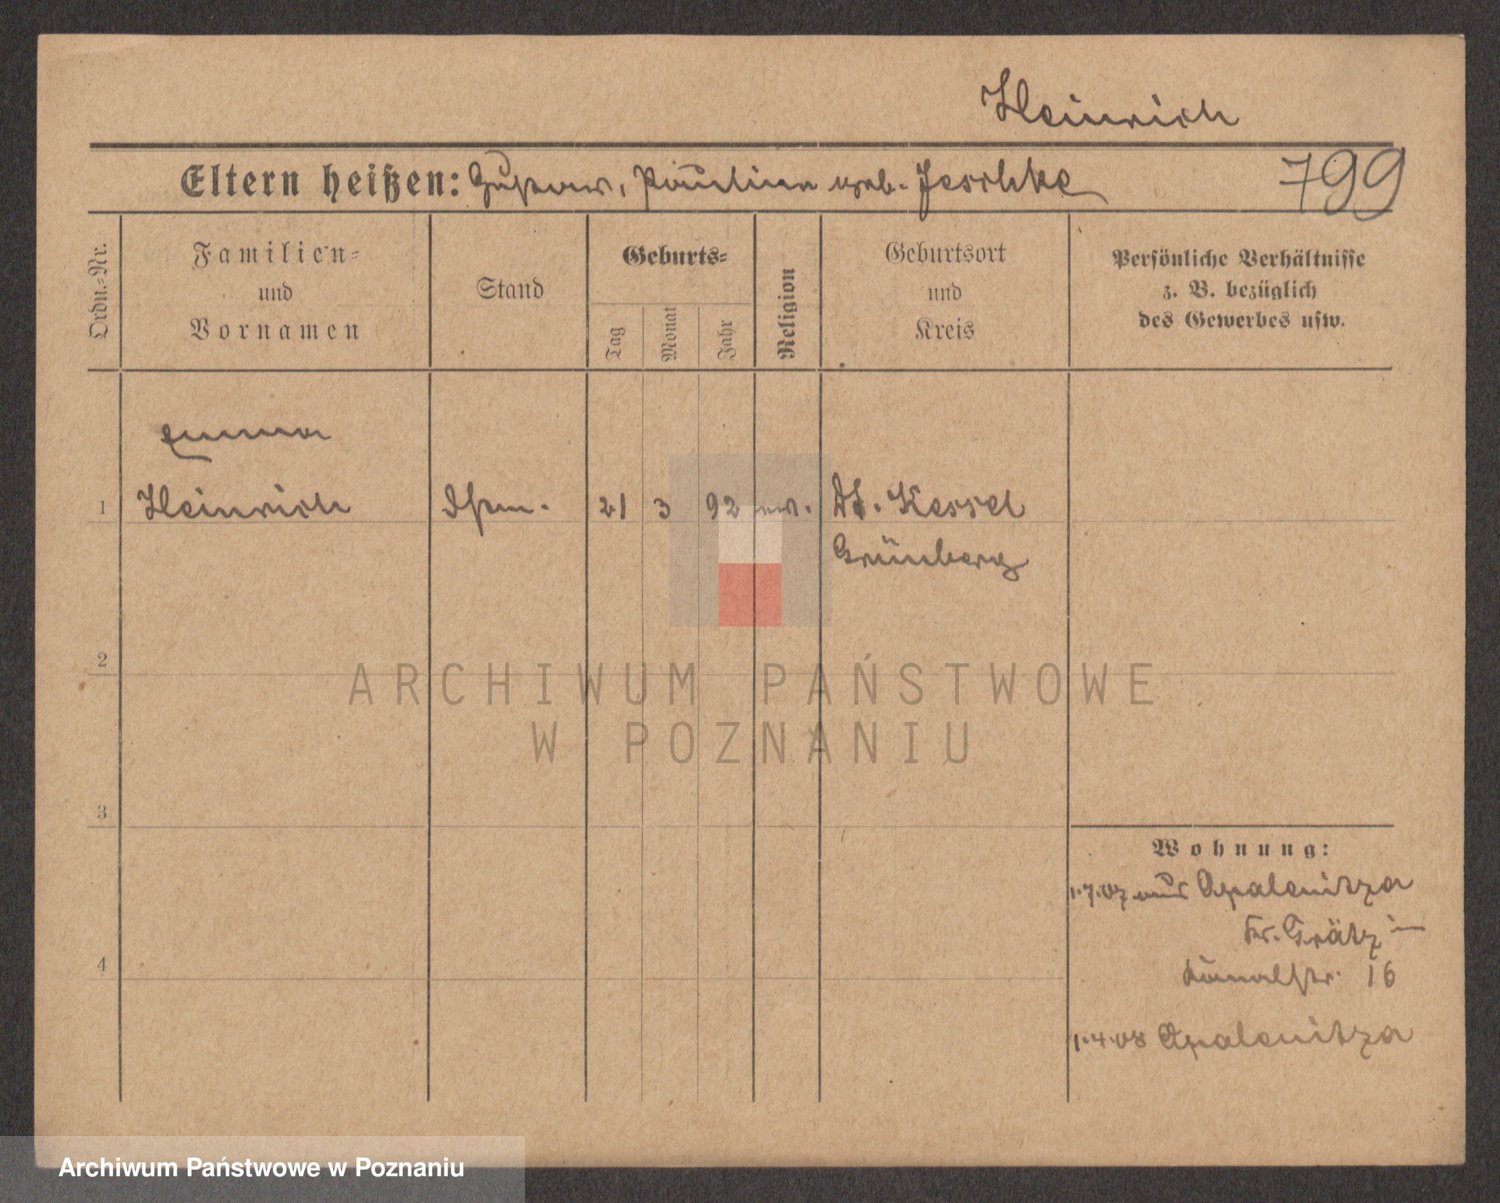 Heinrich
Eltern heißen: Gustav, Pauline geb. Jeschke
799
Ordn.-Nr.
Familien-
und
Vornamen
Stand
Geburts-
Tag
Monat
Jahr
Religion
Geburtsort
und
Kreis
Persönliche Verhältnisse
z. B. bezüglich
des Gewerbes usw.
Emma
1 Heinrich 21 3 92 ev. Dt. Kessel
Grünberg
2
ARCHIWUM PAŃSTWOWE
W POZNANIU
3
Wohnung:
1.7.07 aus Opalenitza
Kr. Grätz in
Kanalstr. 16
4
1.4.08 Opalenitza
Archiwum Państwowe w Poznaniu